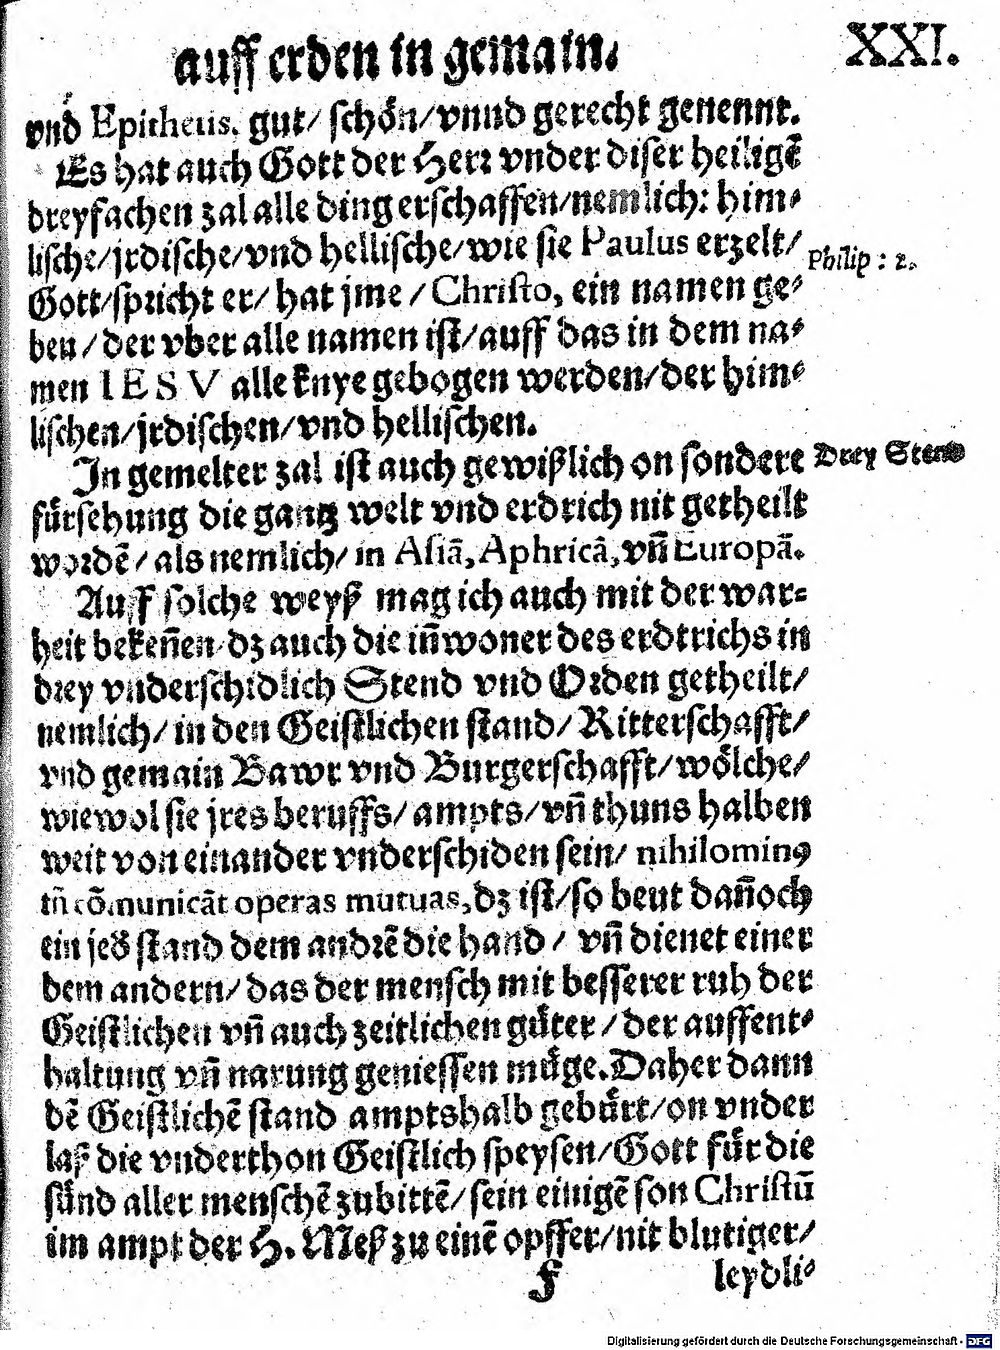 auff erden in gemain.
XXI.
vnd Epithetis, gut/ schön/ vnnd gerecht genennt.
Es hat auch Gott der Herꝛ vnder diser heiligẽ
dreyfachen zal alle ding erschaffen/ nemlich: him⸗
lische/ jrdische/ vnd hellische/ wie sie Paulus erzelt/
Philip: 2.
Gott/ spricht er/ hat jme / Christo, ein namen ge⸗
ben/ der vber alle namen ist/ auff das in dem na⸗
men IESV alle knye gebogen werden/ der him⸗
lischen/ jrdischen/ vnd hellischen.
In gemelter zal ist auch gewißlich on sondere
Drey Stend
fürsehung die gantz welt vnd erdrich nit getheilt
wordẽ/ als nemlich/ in Asiã, Aphricã, vñ Europã.
Auff solche weyß mag ich auch mit der war⸗
heit bekeñen dz auch die iñwoner des erdtrichs in
drey vnderschidlich Stend vnd Orden getheilt/
nemlich/ in den Geistlichen stand/ Ritterschafft/
vnd gemain Bawr vnd Burgerschafft/ wölche/
wiewol sie jres beruffs/ ampts/ vñ thuns halben
weit von einander vnderschiden sein/ nihilominꝰ
tñ cõmunicãt operas mutuas, dz ist/ so beut dañoch
ein jeds stand dem andrẽ die hand / vñ dienet einer
dem andern/ das der mensch mit besserer ruh der
Geistlichen vñ auch zeitlichen güter / der auffent⸗
haltung vñ narung geniessen müge. Daher dann
dẽ Geistlichẽ stand amptshalb gebürt/ on vnder
laß die vnderthon Geistlich speysen/ Gott für die
sünd aller menschẽ zubittẽ/ sein einigẽ son Christũ
im ampt der H. Meß zu einẽ opffer/ nit blutiger/
f
leydli⸗
Digitalisierung gefördert durch die Deutsche Forschungsgemeinschaft - DFG